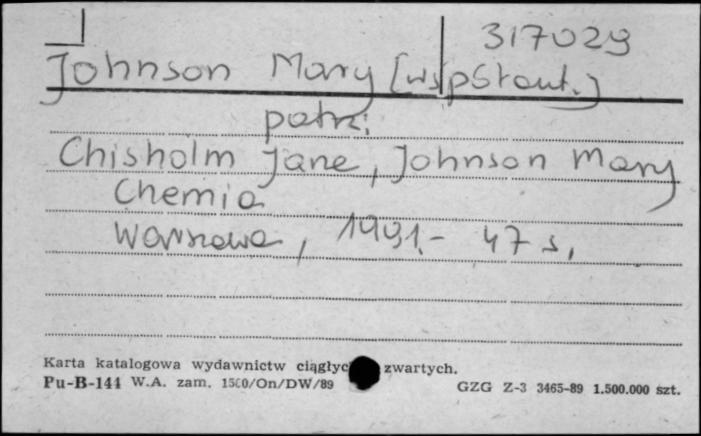 317029
Johnson Mary [współaut.]
patrz:
Chisholm Jane, Johnson Mary
Chemia
Warszawa, 1991.- 47 s.
Karta katalogowa wydawnictw ciągłyc zwartych.
Pu-B-144 W.A. zam. 1500/On/DW/89 GZG Z-3 3465-89 1.500.000 szt.